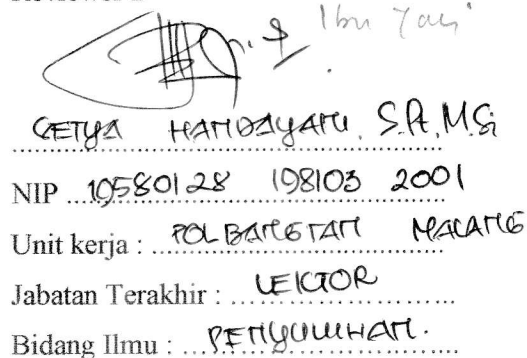 SETYA HANDAYANI, S.Pt, M.Si
NIP 19580128 198103 2001
Unit kerja : POLBANGTAN MALANG
Jabatan Terakhir : LEKTOR
Bidang Ilmu : PENYULUHAN.